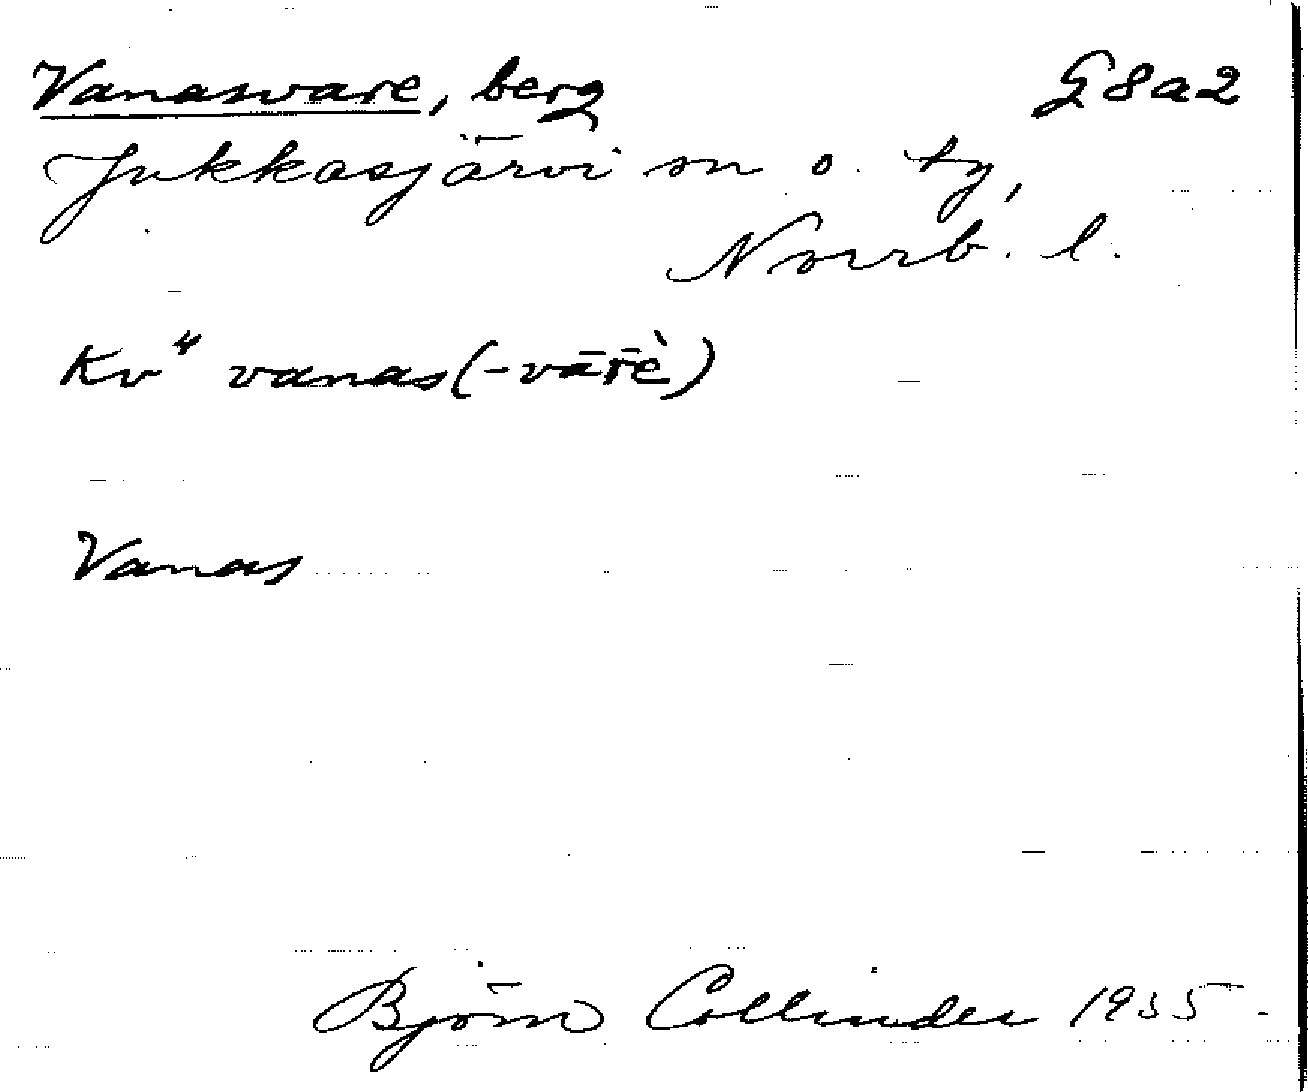 Vanasvare, berg G8a2
Jukkasjärvi sn o. tg,
Norrb. l.
Kv⁴ vanas(-vār̄ė̀)
Vanas
Björn Collinder 1935-